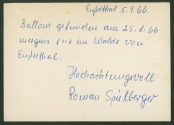 Eußerthal 5.9.66.
Ballon gefunden am 25.8.66
morgens und im Walde von
Eußerthal.
Hochachtungsvoll
Roman Spielberger